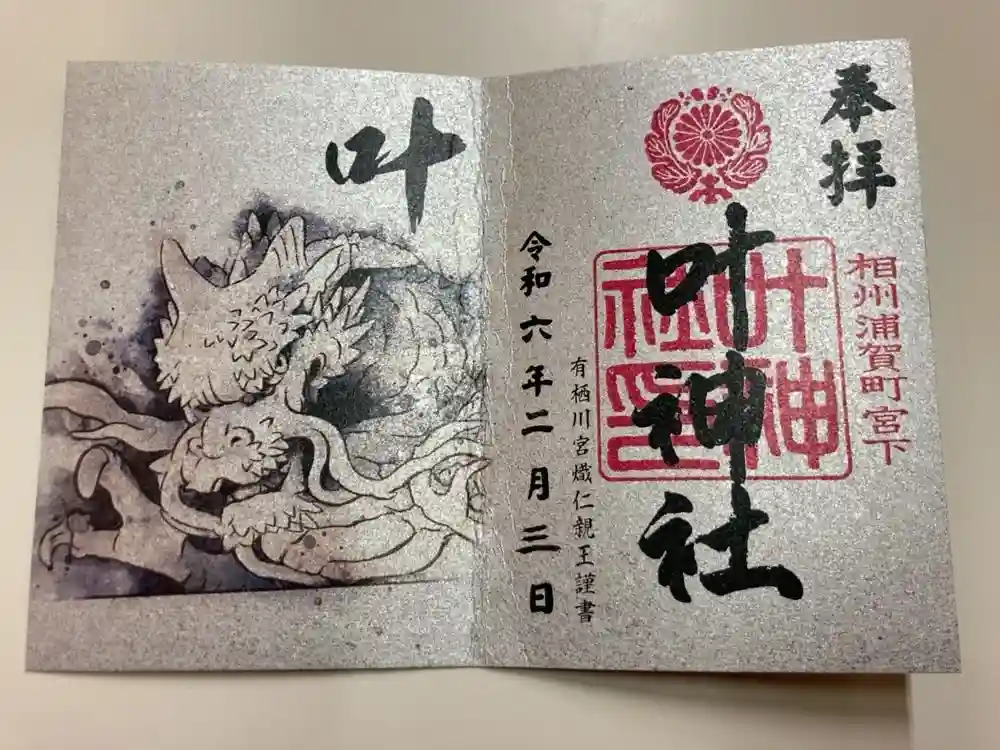 奉拝
相州浦賀町宮下
叶神社
叶神
社印
有栖川宮熾仁親王謹書
令和六年二月三日
叶